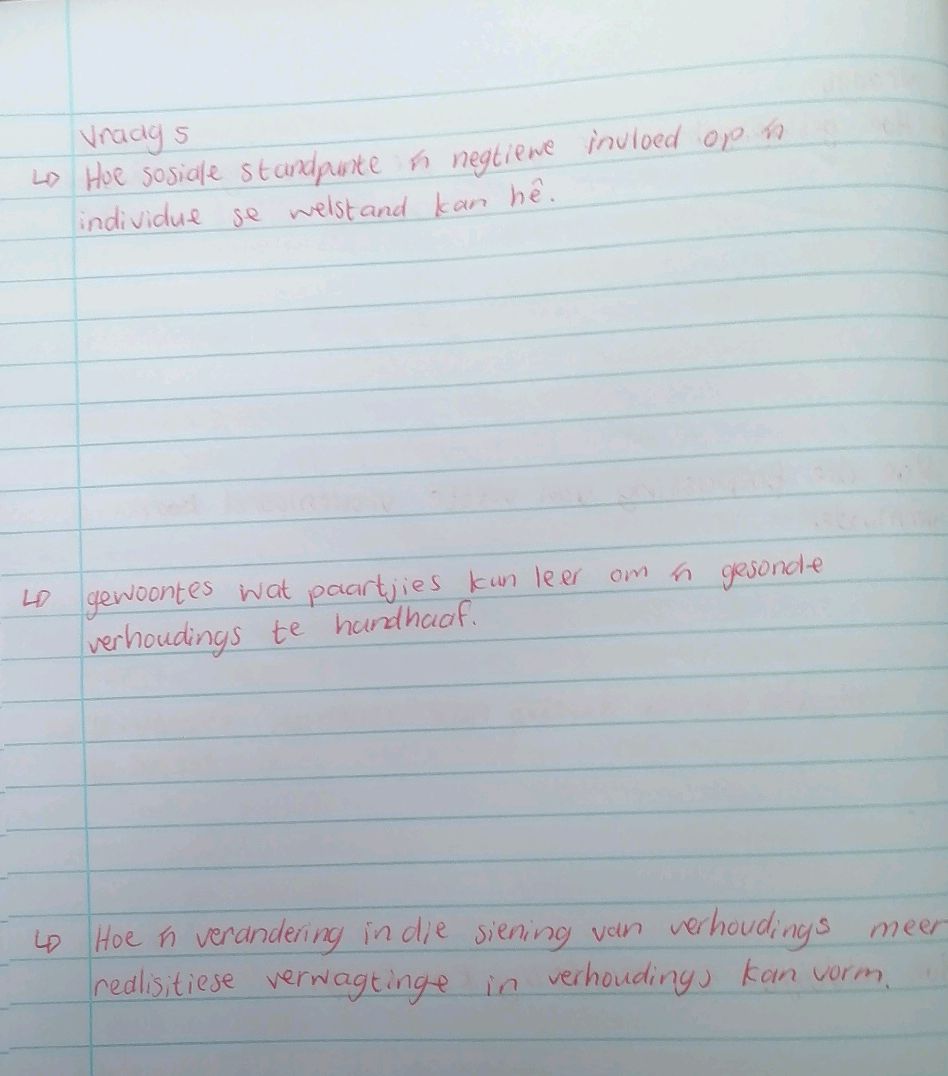 Vraag 5
↳ Hoe sosiale standpunte 'n negtiewe invloed op 'n
individue se welstand kan hê.
↳ gewoontes wat paartjies kan leer om 'n gesonde
verhoudings te handhaaf.
↳ Hoe 'n verandering in die siening van verhoudings meer
realisitiese verwagtinge in verhoudings kan vorm.